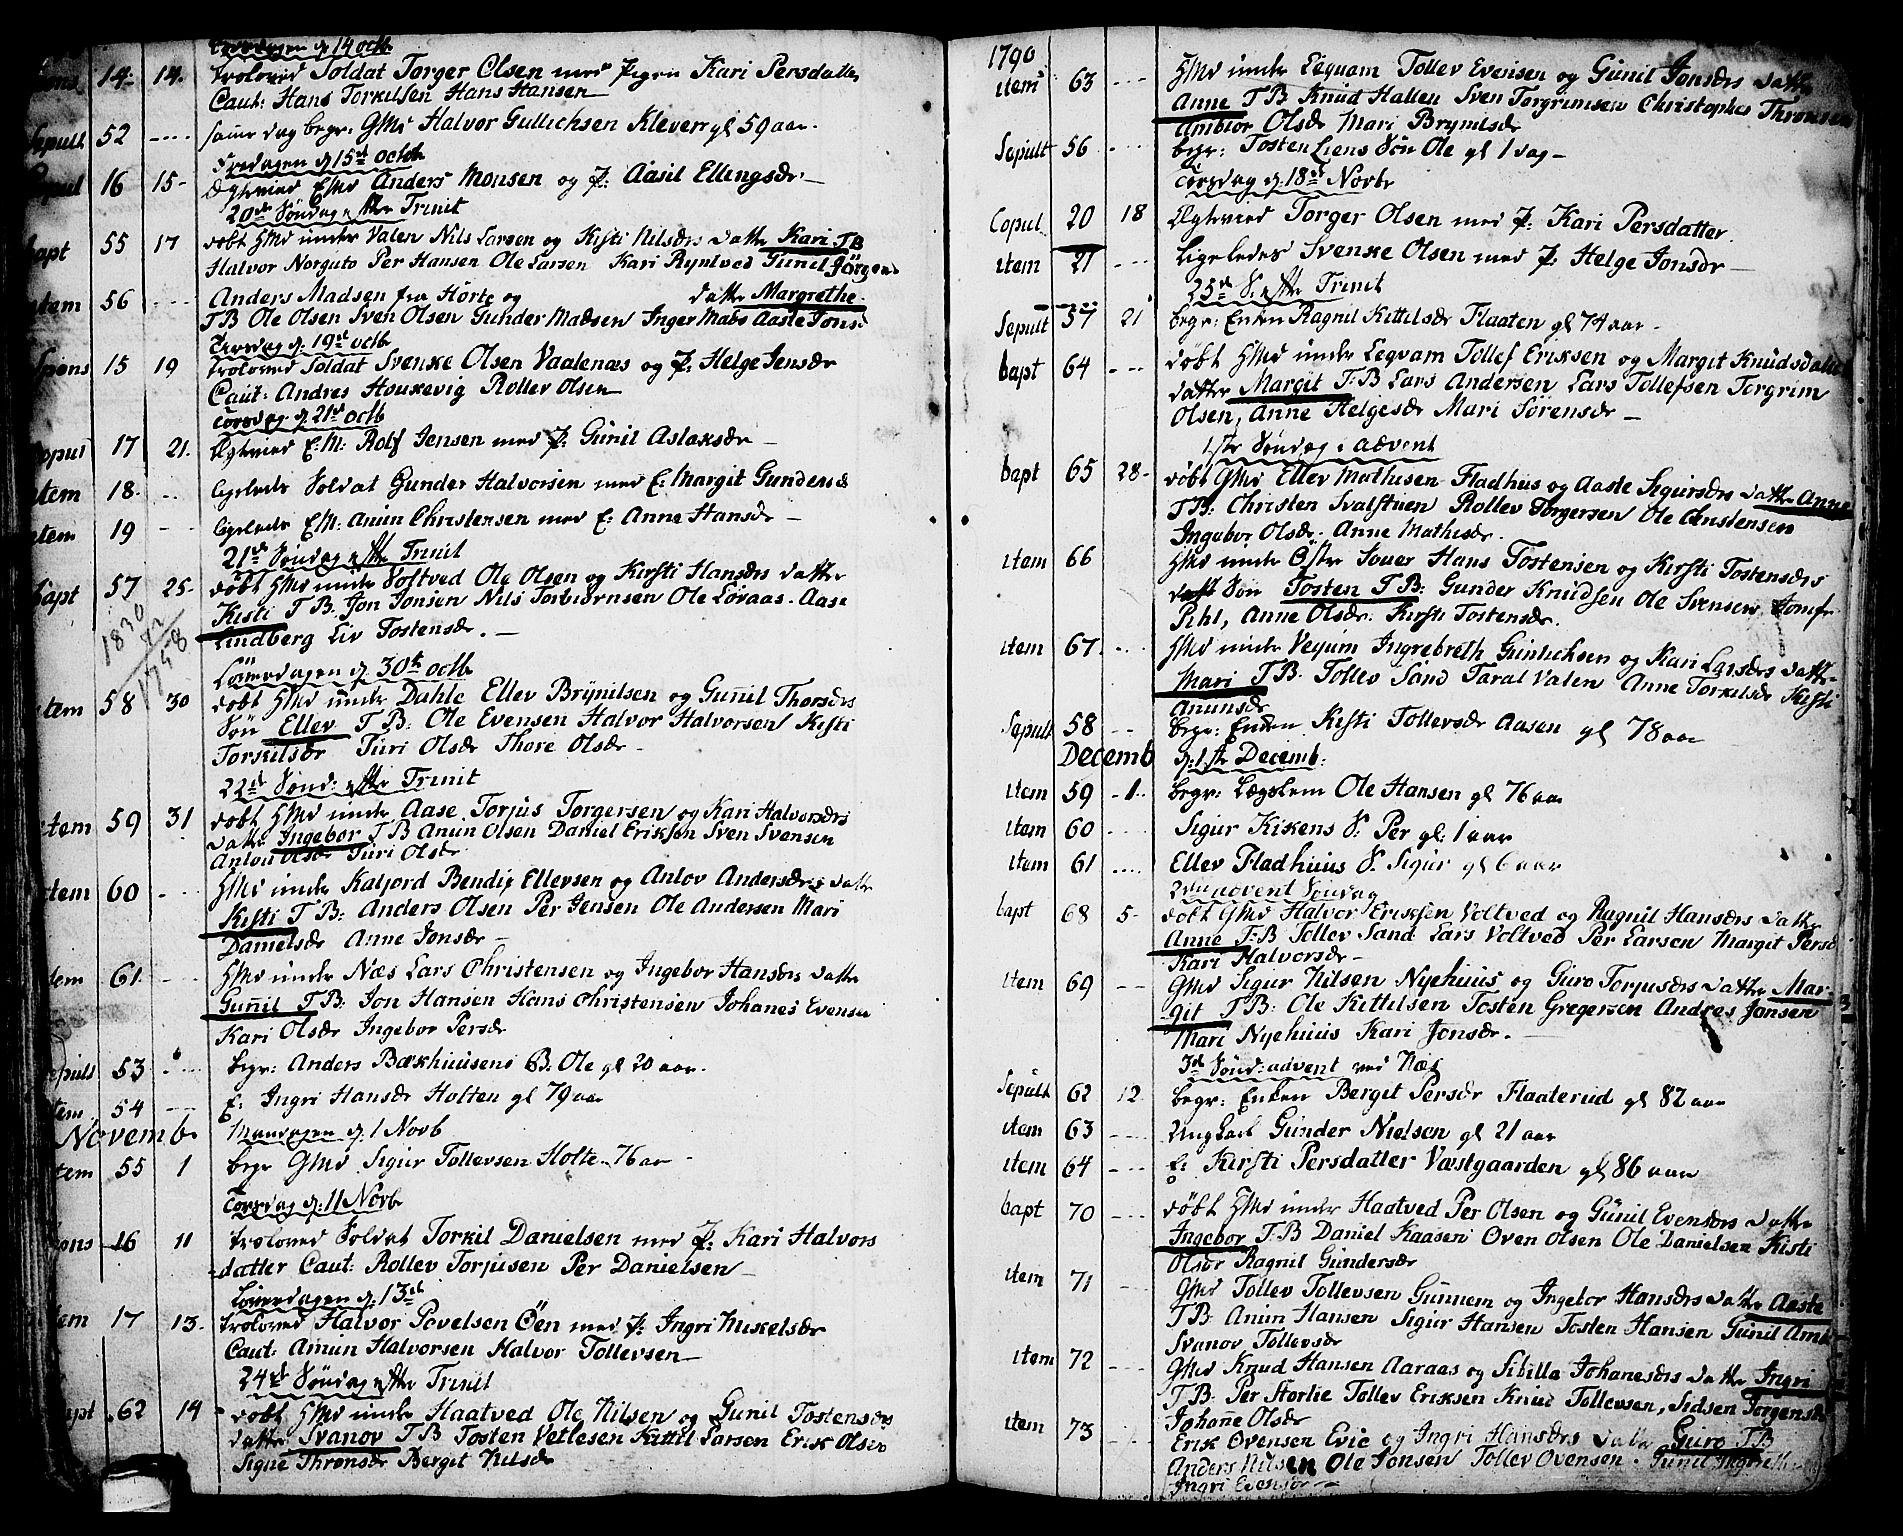 Torsdagen d. 14 octb
Spons 14. 14. troloved Soldat Torger Olsen med P. Kari Persdatter
Caut: Hans Torkilsen Hans Hansen
Sepult 52 ---- samme dag begr: GMd Halvor Gullichsen Kleven gl 59 aar.
Fredagen d 15de octb
Copul 16 15- Ægteviet EMd Anders Monsen og P: Aasil Ellingsdr
20de Søndag efter Trinit
bapt 55 17 døbt HMd under Valen Nils Larsen og Kisti Nilsdrs datter Kari TB
Halvor Norguto Per Hansen Ole Larsen Kari Ryntved Gunil Jörgens
item 56 ---- Anders Madsen fra Hörte og datter Margrethe
TB Ole Olsen Sven Olsen Gunder Madsen Inger Mads Aaste Jonsd
Tirsdag d. 19de octb
Spons 15 19 troloved Soldat Svenke Olsen Vaalenæs og P: Helge Jensdr
Caut: Andres Houkevig Rollev Olsen
Torsdag d. 21de octb
Copul 17 21. Ægteviet E.M: Rolf Jensen med P: Gunil Aslaksdr
item 18. -- ligeleds Soldat Gunder Halvorsen med E: Margit Gundersd
item 19 --- ligeleds E.M: Anun Christensen med E: Anne Hansdr
21de Søndag efter Trinit
bapt 57 25- døbt HMd under Voltved Ole Olsen og Kirsti Hansdrs datter
Kisti TB. Jon Jonsen Nils Torbiörnsen Ole Löraas. Aase
Lindberg Liv Tostensdr.
1830
1758
Löverdagen d. 30te octb
item 58 30 døbt HMd under Dahle Ellev Brynilsen og Gunil Thorsdrs
Søn Ellev TB: Ole Evensen Halvor Halvorsen Kisti
Torkilsdr Turi Olsdr Thore Olsdr
22de Sönd: efter Trinit
item 59 31 døbt HMd under Aase Torjus Torgersen og Kari Halvorsdrs
datter Ingebor TB Anun Olsen Daniel Eriksen Sven Svensen
Antou Olsdr Turi Olsdr
item 60 --- HMd under Kasjord Bendix Ellevsen og Anlov Andersdrs datter
Kisti TB: Anders Olsen Per Jensen Ole Andersen Mari
Danielsdr Anne Jonsdr
item 61. --- HMd under Næs Lars Christensen og Ingebor Hansdrs datter
Gunil TB: Jon Hansen Hans Christensen Johanes Evensen
Kari Olsdr Ingebor Persdr
Sepult 53 ---- begr: Anders Bækhuusens B: Ole gl 20 aar.
item 54 --- E: Ingri Hansdr Holten gl 79 aar
Novemb. Mandagen d. 1 Novb
item 55 1 begr GMd Sigur Tollevsen Holte 76 aar
Torsdag d. 11 Novb
Spons 16 11 troloved Soldat Torkil Danielsen med P: Kari Halvors
datter Caut: Rollev Torjusen Per Danielsen
Löverdagen d. 13de
item 17 13. troloved Halvor Povelsen Öen med P: Ingri Huskelsdr
Caut: Amun Halvorsen Halvor Tollevsen
24de Søndag efter Trinit
bapt 62 14 døbt HMd under Haatved Ole Nilsen og Gunil Tostensdrs
datter Svanov TB Tosten Vetlesen Kittil Larsen Erik Olsen
Signe Thronsdr Bergit Nilsdr
1790
item 63 --- HMd under Leqvam Tollev Evensen og Gunil Jonsdrs datter
Anne TB Knud Hallen Sven Torgrimsen Christopher Thronsen
Ambior Olsdr Mari Brynilsdr
Sepult 56 --- begr: Tosten Liens Søn Ole gl 1 dag
Torsdag d. 18de Novbr
Copul 20 18 Ægteviet Torger Olsen med P: Kari Persdatter.
item 21 --- Ligeledes Svenke Olsen med P. Helge Jonsdr
25de S. efter Trinit
Sepult 57 21 begr: Enken Ragnil Kittilsdr Flaaten gl 74 aar
bapt 64 --- døbt HMd under Leqvam Tollef Eriksen og Margit Knudsdatter
datter Margit TB Lars Andersen Lars Tollefsen Torgrim
Olsen, Anne Helgesdr Mari Sörensdr
1ste Söndag i advent
bapt 65 28- døbt GMd Ellev Mathisen Fladhus og Aaste Sigursdrs datter Anne
TB: Christen Svalstuen Rollev Torgersen Ole Christensen
Ingebor Olsdr. Anne Mathisdr.
item 66 HMd under Östre Souer Hans Tostensen og Kirsti Tostensdrs
Søn Tosten TB: Gunder Knudsen Ole Svensen Jomfr
Pihl, Anne Olsdr: Kirsti Tostensdr.
item 67. --- HMd under Vegum Ingrebreth Gunlichsen og Kari Larsdrs datter
Mari TB. Tollev Sand Taral Valen Anne Torkilsdr Kisti
Anunsdr
Sepult 58 -- begr: Enken Kisti Tollevsdr Aasen gl 78 aar
Decemb d: 1ste Decemb:
item 59 -1.. begr: Lægslem Ole Hansen gl 76 aar
item 60 ---- Sigur Kikens S: Per gl: 1 aar
item 61 ..... Ellev Fladhuus S. Sigur gl 6 aar
2den advent Søndag
bapt 68 5- døbt GMd Halvor Eriksen Voltved og Ragnil Hansdrs datter
Anne TB Tollev Sand Lars Voltved Per Larsen Margit Persd
Kari Halvorsdr
item 69 --- GMd Sigur Nilsen Nyehuus og Guro Torjusdrs datter Mar-
git TB: Ole Kittilsen Tosten Gregersen Andres Jonsen
Mari Nyehuus Kari Jonsdr.
3de Sönd: advent ved Næs
Sepult 62 12 begr: Enken Berget Persdr Flaaterud gl 82 aar
item 63 ---- Ungkarl Gunder Nielsen gl 21 aar
item 64 --- E: Kirsti Persdatter Væstgaarden gl 86 aar
bapt 70 --- døbt HMd under Haatved Per Olsen og Gunil Evensdrs datter
Ingebor TB Daniel Kaasen Oven Olsen Ole Danielsen Kisti
Olsdr Ragnil Gundersdr
item 71 --- GMd Tollev Tollevsen Gunnem og Ingebor Hansdrs datter Aaste
TB. Anun Hansen Sigur Hansen Tosten Hansen Gunil Amb
Svanov Tollevsdr
item 72 --- GMd Knud Hansen Aaraas og Sibilla Johanesdrs datter Ingri
TB: Per Storlie Tollev Eriksen Knud Tollevsen, Sidsen Torgensdr
Johane Olsdr
item 73 --- Erik Ovensen Evie og Ingri Hansdrs datter Guro TB
Anders Nilsen Ole Jonsen Tollev Ovensen. Gunil Ingreth
Ingri Evensdr